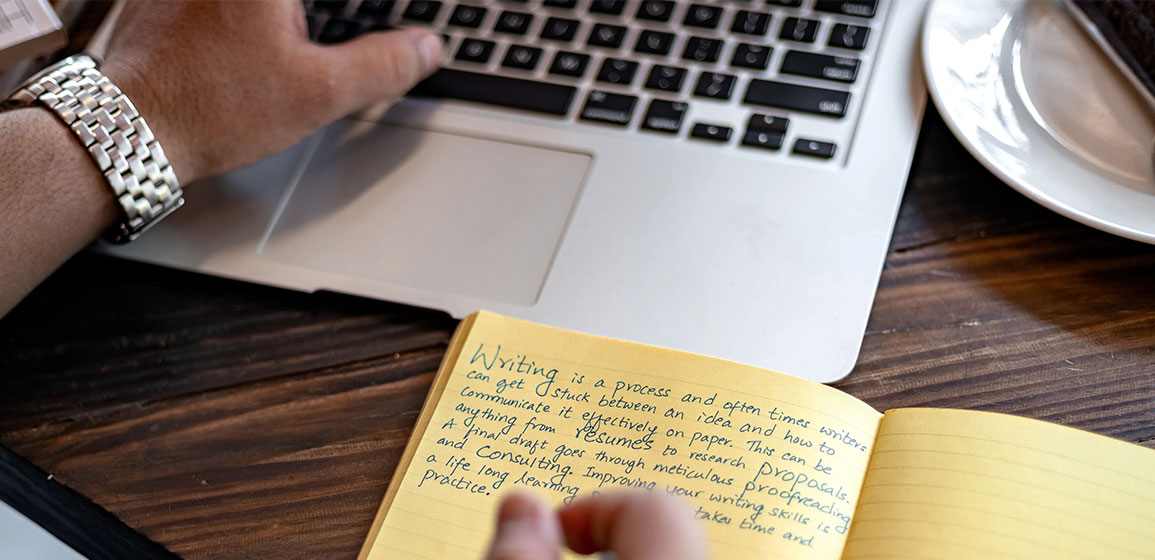 Writing is a process and often times writers
can get stuck between an idea and how to
communicate it effectively on paper. This can be
anything from résumés to research proposals.
A final draft goes through meticulous proofreading
and Consulting. Improving your writing skills is
a life long learning takes time and
practice.